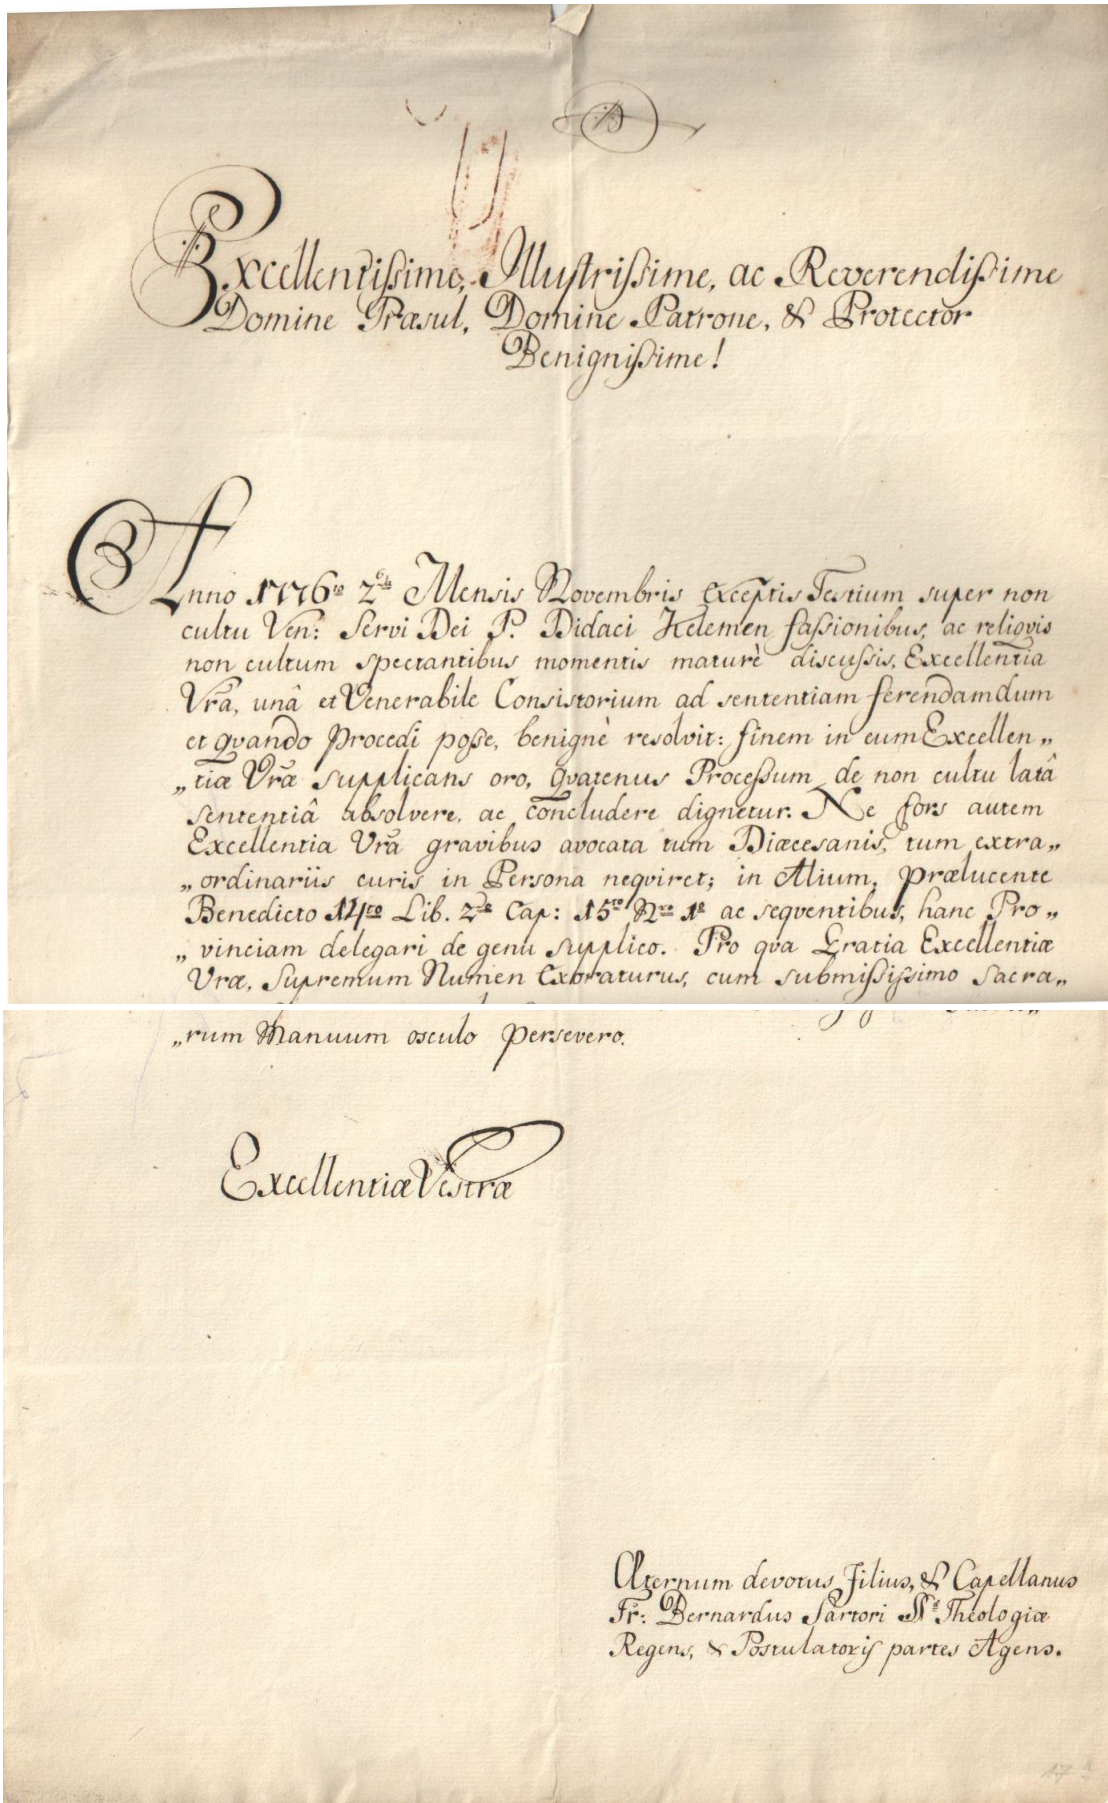 B
Excellentissime, Illustrissime, ac Reverendissime
Domine Præsul, Domine Patrone, & Protector
Benignissime!
Anno 1776to 2da Mensis Novembris exceptis Testium super non
cultu Ven: Servi Dei P. Didaci Kelemen fassionibus, ac reliqvis
non cultum spectantibus momentis maturè discussis, Excellentia
Vra͂, unâ et Venerabile Consistorium ad sententiam ferendam dum
et qvando Procedi posse, benignè resolvit: finem in eum Excellen„
„tiæ Vræ͂ supplicans oro, qvatenus Processum de non cultu latâ
sententiâ absolvere, ac concludere dignetur. Ne fors autem
Excellentia Vra͂ gravibus avocata tum Diæcesanis, tum extra„
„ordinariis curis in Persona neqviret; in Alium, prælucente
Benedicto 14to Lib. 2do Cap: 15to Nro 1o ac seqventibus, hanc Pro„
„vinciam delegari de genu supplico. Pro qva Gratia Excellentiæ
Vræ, Supremum Numen Exoraturus, cum submississimo Sacra„
„rum Manuum osculo persevero.
Excellentiæ Vestræ
Æternum devotus Filius, & Capellanus
Fr: Bernardus Sartori SS. Theologiæ
Regens, & Postulatoris partes Agens.